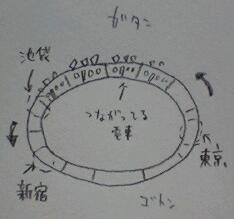 ガタン
池袋
つながってる
電車
東京
新宿
ゴトン